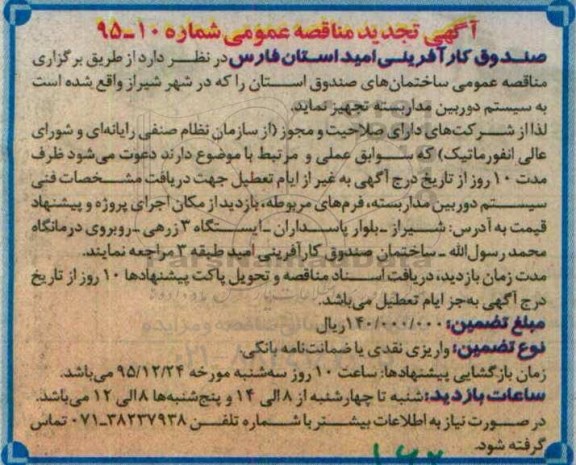 آگهی تجدید مناقصه عمومی شماره ۱۰ـ۹۵
صندوق کارآفرینی امید استان فارس در نظر دارد از طریق برگزاری
مناقصه عمومی ساختمان‌های صندوق استان را که در شهر شیراز واقع شده است
به سیستم دوربین مداربسته تجهیز نماید.
لذا از شرکت‌های دارای صلاحیت و مجوز (از سازمان نظام صنفی رایانه‌ای و شورای
عالی انفورماتیک) که سوابق عملی و مرتبط با موضوع دارند دعوت می‌شود ظرف
مدت ۱۰ روز از تاریخ درج آگهی به غیر از ایام تعطیل جهت دریافت مشخصات فنی
سیستم دوربین مداربسته، فرم‌های مربوطه، بازدید از مکان اجرای پروژه و پیشنهاد
قیمت به آدرس: شیراز ـ بلوار پاسداران ـ ایستگاه ۳ زرهی ـ روبروی درمانگاه
محمد رسول‌الله ـ ساختمان صندوق کارآفرینی امید طبقه ۳ مراجعه نمایند.
مدت زمان بازدید، دریافت اسناد مناقصه و تحویل پاکت پیشنهادها ۱۰ روز از تاریخ
درج آگهی به‌جز ایام تعطیل می‌باشد.
مبلغ تضمین: ۱۴۰/۰۰۰/۰۰۰ ریال
نوع تضمین: واریزی نقدی یا ضمانت‌نامه بانکی.
زمان بازگشایی پیشنهادها: ساعت ۱۰ روز سه‌شنبه مورخه ۹۵/۱۲/۲۴ می‌باشد.
ساعات بازدید: شنبه تا چهارشنبه از ۸ الی ۱۴ و پنج‌شنبه‌ها ۸ الی ۱۲ می‌باشد.
در صورت نیاز به اطلاعات بیشتر با شماره تلفن ۳۸۲۳۷۹۳۸-۰۷۱ تماس
گرفته شود.